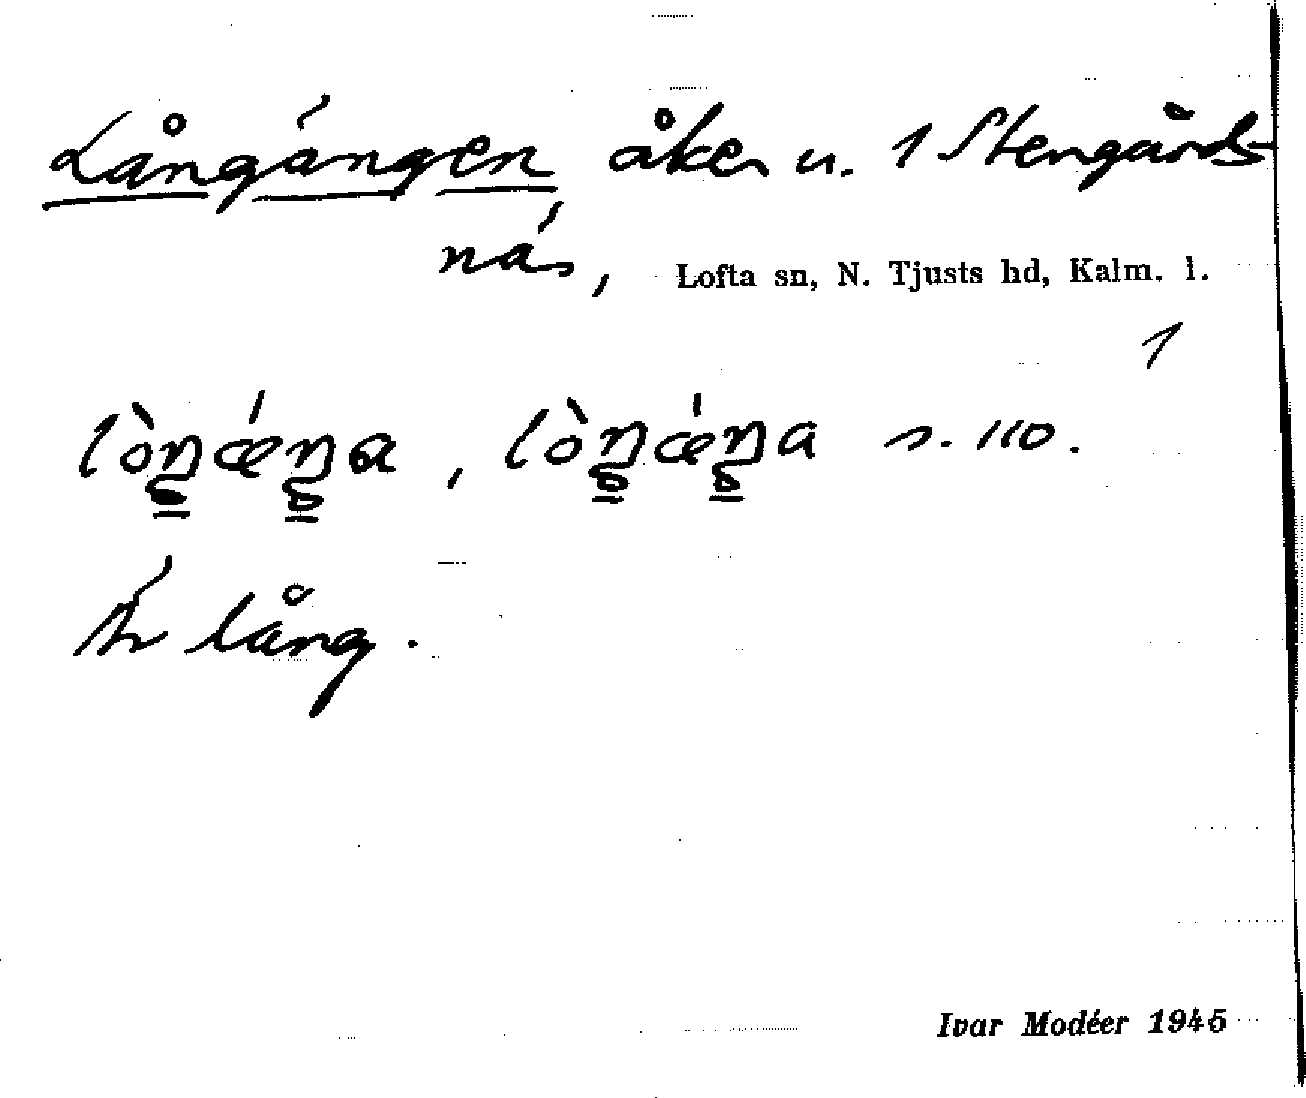 Långängen åker u. 1 Stengårds-
näs, Lofta sn, N. Tjusts hd, Kalm. l.
1
lòŋǽŋa, lòŋǽŋa s. 110.
Är lång.
Ivar Modéer 1945